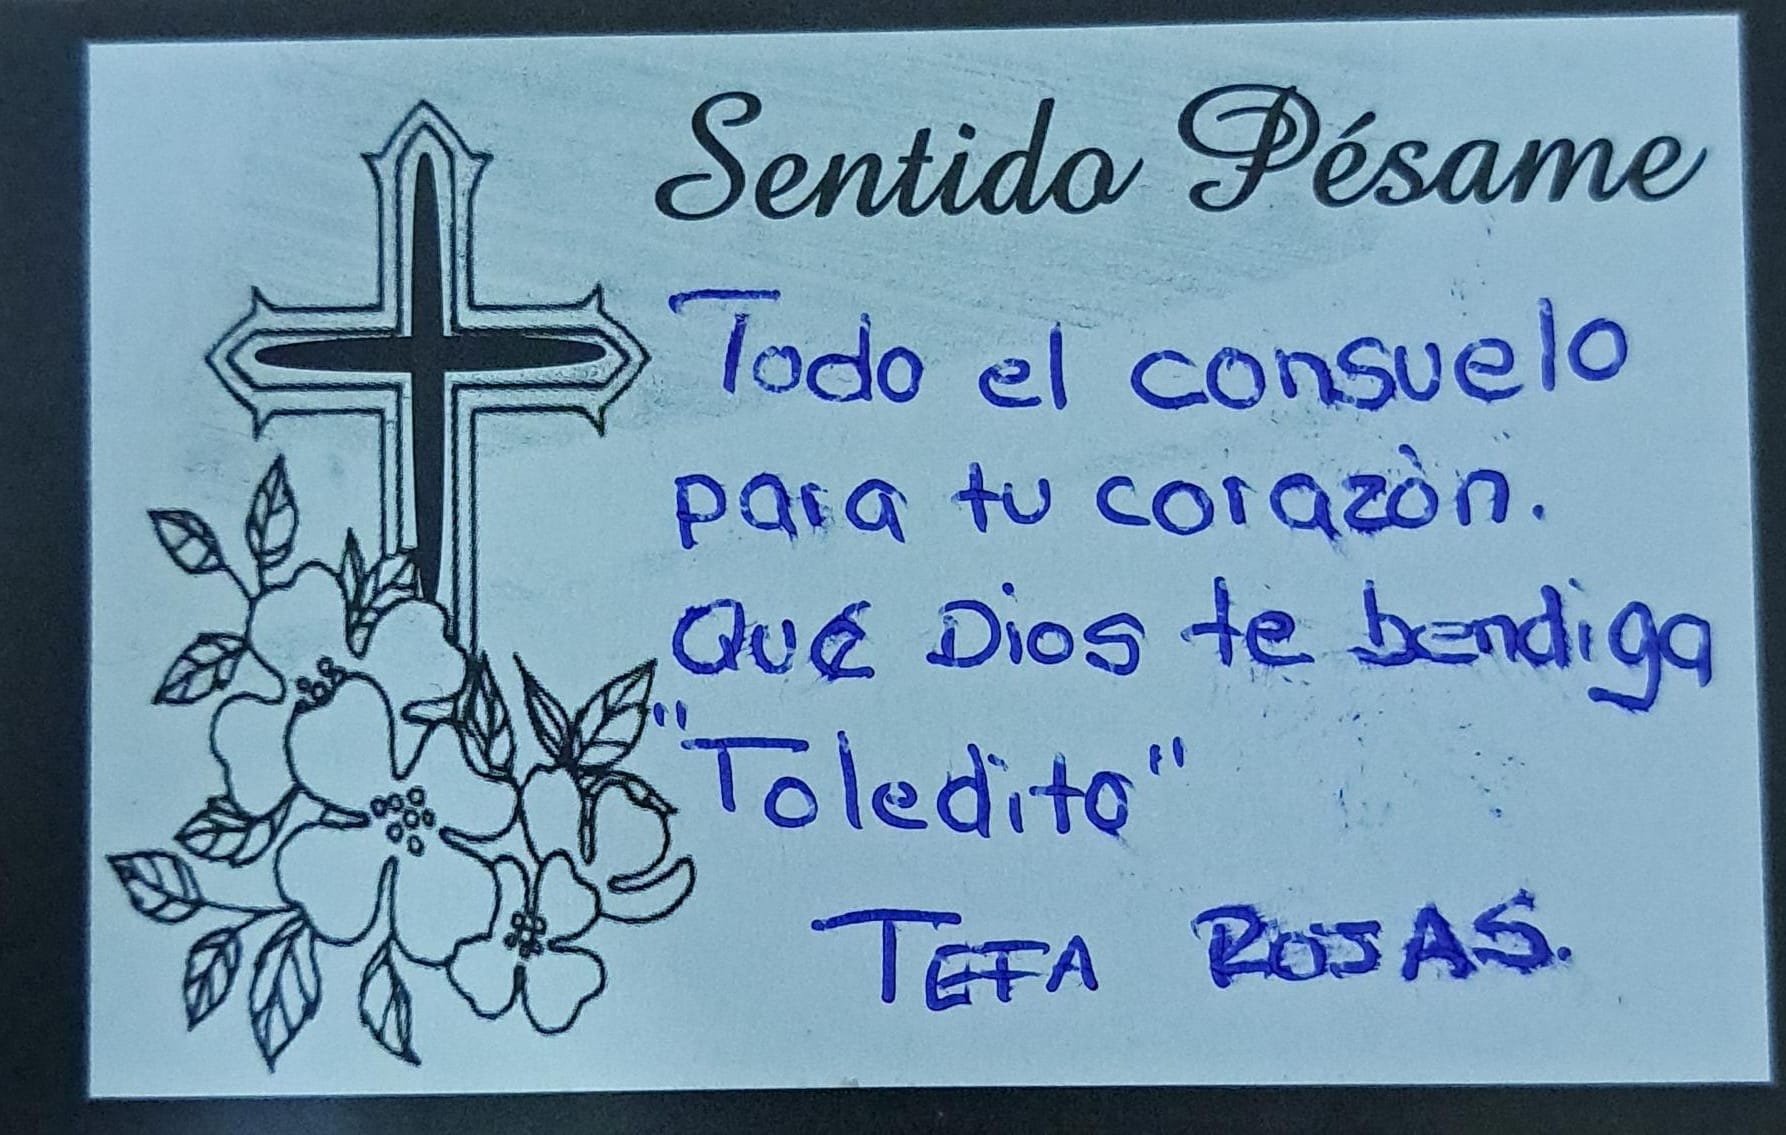 Sentido Pésame
Todo el consuelo
para tu corazòn.
Que Dios te bendiga
"Toledito"
TEFA ROJAS.